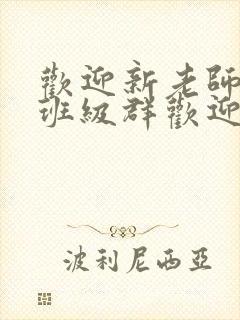 歡迎新老師
班級群歡迎
波利尼西亞